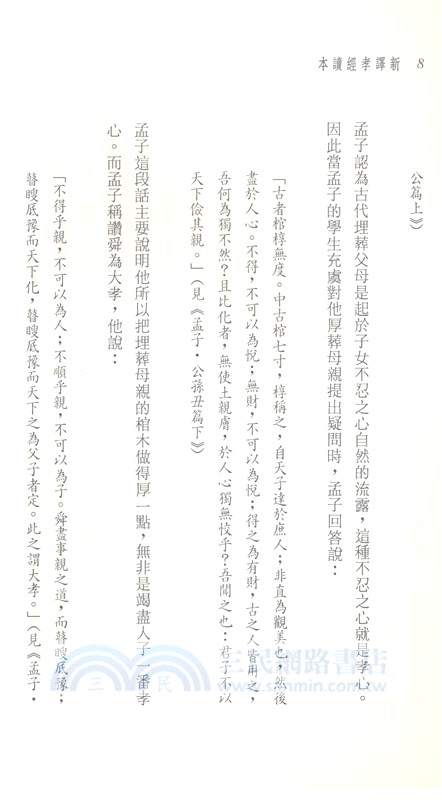 8
新譯孝經讀本
公篇上》）
孟子認為古代埋葬父母是起於子女不忍之心自然的流露，這種不忍之心就是孝心。
因此當孟子的學生充虞對他厚葬母親提出疑問時，孟子回答說：
「古者棺椁無度。中古棺七寸，椁稱之，自天子達於庶人；非直為觀美也，然後
盡於人心。不得，不可以為悅；無財，不可以為悅；得之為有財，古之人皆用之，
吾何為獨不然？且比化者，無使土親膚，於人心獨無恔乎？吾聞之也：君子不以
天下儉其親。」（見《孟子·公孫丑篇下》）
孟子這段話主要說明他所以把埋葬母親的棺木做得厚一點，無非是竭盡人子一番孝
心。而孟子稱讚舜為大孝，他說：
「不得乎親，不可以為人；不順乎親，不可以為子。舜盡事親之道，而瞽瞍厎豫；
瞽瞍厎豫而天下化，瞽瞍厎豫而天下之為父子者定。此之謂大孝。」（見《孟子·
三民網路書店
三民
www.sanmin.com.tw